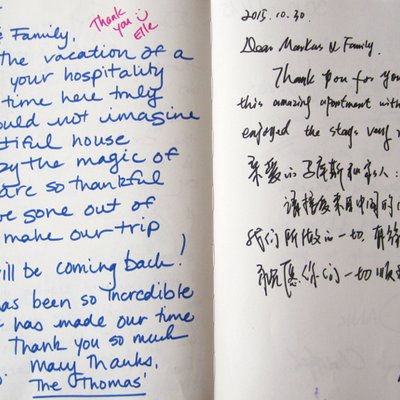 Family,
Thank
you
Elle
the vacation of a
your hospitality
time here truly
ould not imagine
tiful house
by the magic of
are so thankful
ve gone out of
make our trip
!
will be coming back!
has been so incredible
has made our time
Thank you so much
Many Thanks,
The Thomas'
2015.10.30.
Dear Markus & Family.
Thank you for you
this amazing apartment with
enjoyed the stays very
亲爱的 和家人:
请接受来自中国的
我们所做的一切,
祝愿你们一切顺